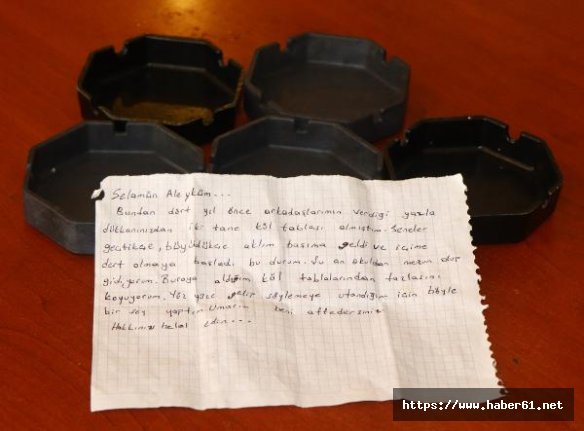 Selamün Aleyküm...
Bundan dört yıl önce arkadaşlarımın verdiği gazla
dükkanınızdan iki tane kül tablası almıştım. Seneler
geçtikçe, büyüdükçe aklım başıma geldi ve içime
dert olmaya başladı bu durum. Şu an okuldan mezun olup
gidiyorum. Buraya aldığım kül tablalarından fazlasını
koyuyorum. Yüz yüze gelip söylemeye utandığım için böyle
bir şey yaptım. Umarım beni affedersiniz
Hakkınızı helal edin...
https://www.haber61.net